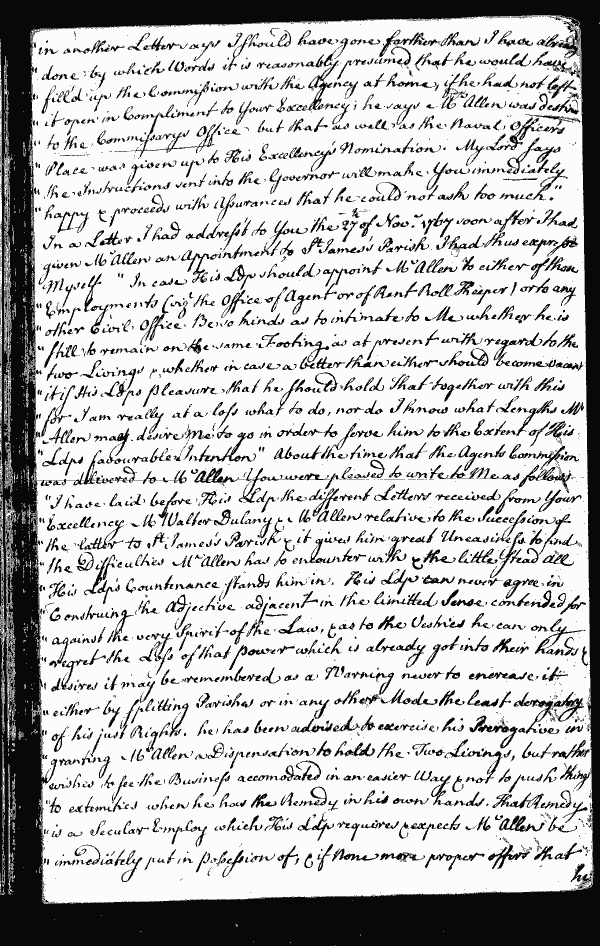 in another Letter says I should have gone farther than I have already
" done by which Words it is reasonably presumed that he would have
" fill'd up the Commission with the Agency at home, if he had not left
" it open in Compliment to Your Excellency; he says Mr Allen was destin'd
" to the Commissarys Office but that as well as the Naval Officers
" Place was given up to His Excellency's Nomination. My Lord says
" the Instructions sent into the Governor will make You immediately
" happy & proceeds with Assurances that he could not ask too much."
In a Letter I had address't to You the 27th of Novr 1767 soon after I had
given Mr Allen an Appointment to St James's Parish I had thus express't
Myself. " In case His Ldp should appoint Mr Allen to either of those
" Employments (vizt the Office of Agent or of Rent Roll Keeper) or to any
" other Civil Office Be so kind as to intimate to Me whether he is
" still to remain on the same Footing as at present with regard to the
" two Livings & whether in case a better than either should become vacant
" it if His Ldps Pleasure that he should hold That together with this
" for I am really at a loss what to do, nor do I know what Lengths Mr
" Allen may desire Me to go in order to serve him to the Extent of His
" Ldps favourable Intention" About the time that the Agents Commission
was delivered to Mr Allen You were pleased to write to Me as follows
" I have laid before His Ldp the different Letters received from Your
" Excellency Mr Walter Dulany & Mr Allen relative to the Succession of
" the latter to St James's Parish & it gives him great Uneasiness to find
" the Difficulties Mr Allen has to encounter with & the little Stead all
" His Ldps Countenance stands him in. His Ldp can never agree in
" Construing the Adjective adjacent in the limitted Sense contended for
" against the very Spirit of the Law, & as to the Vestries he can only
" regret the Loss of that Power which is already got into their hands &
" desires it may be remembered as a Warning never to encrease it
" either by splitting Parishes or in any other Mode the least derogatory
" of his just Rights. he has been advised to exercise his Prerogative in
" granting Mr Allen a Dispensation to hold the Two Livings, but rather
" wishes to see the Business accomodated in an easier Way & not to push things
" to extemities when he has the Remedy in his own hands. That Remedy
" is a Secular Employ which His Ldp requires & expects Mr Allen be
" immediately put in possession of, & if None more proper offers that
he